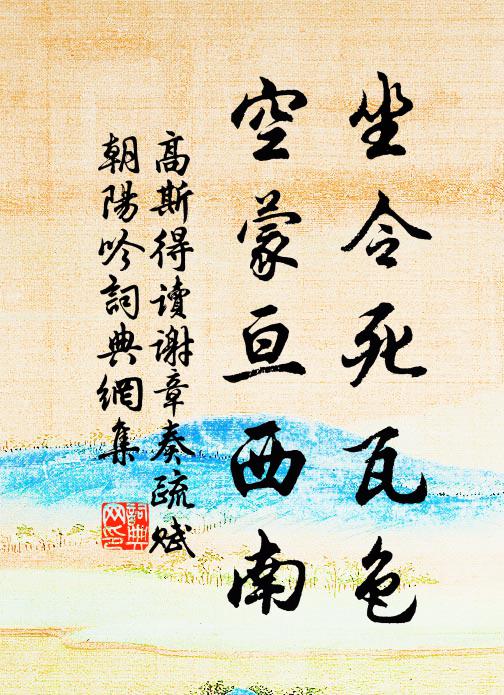 坐令死瓦色
空蒙亘西南
高斯得讀謝章奏疏賦
朝陽吟詞典網集
詞典